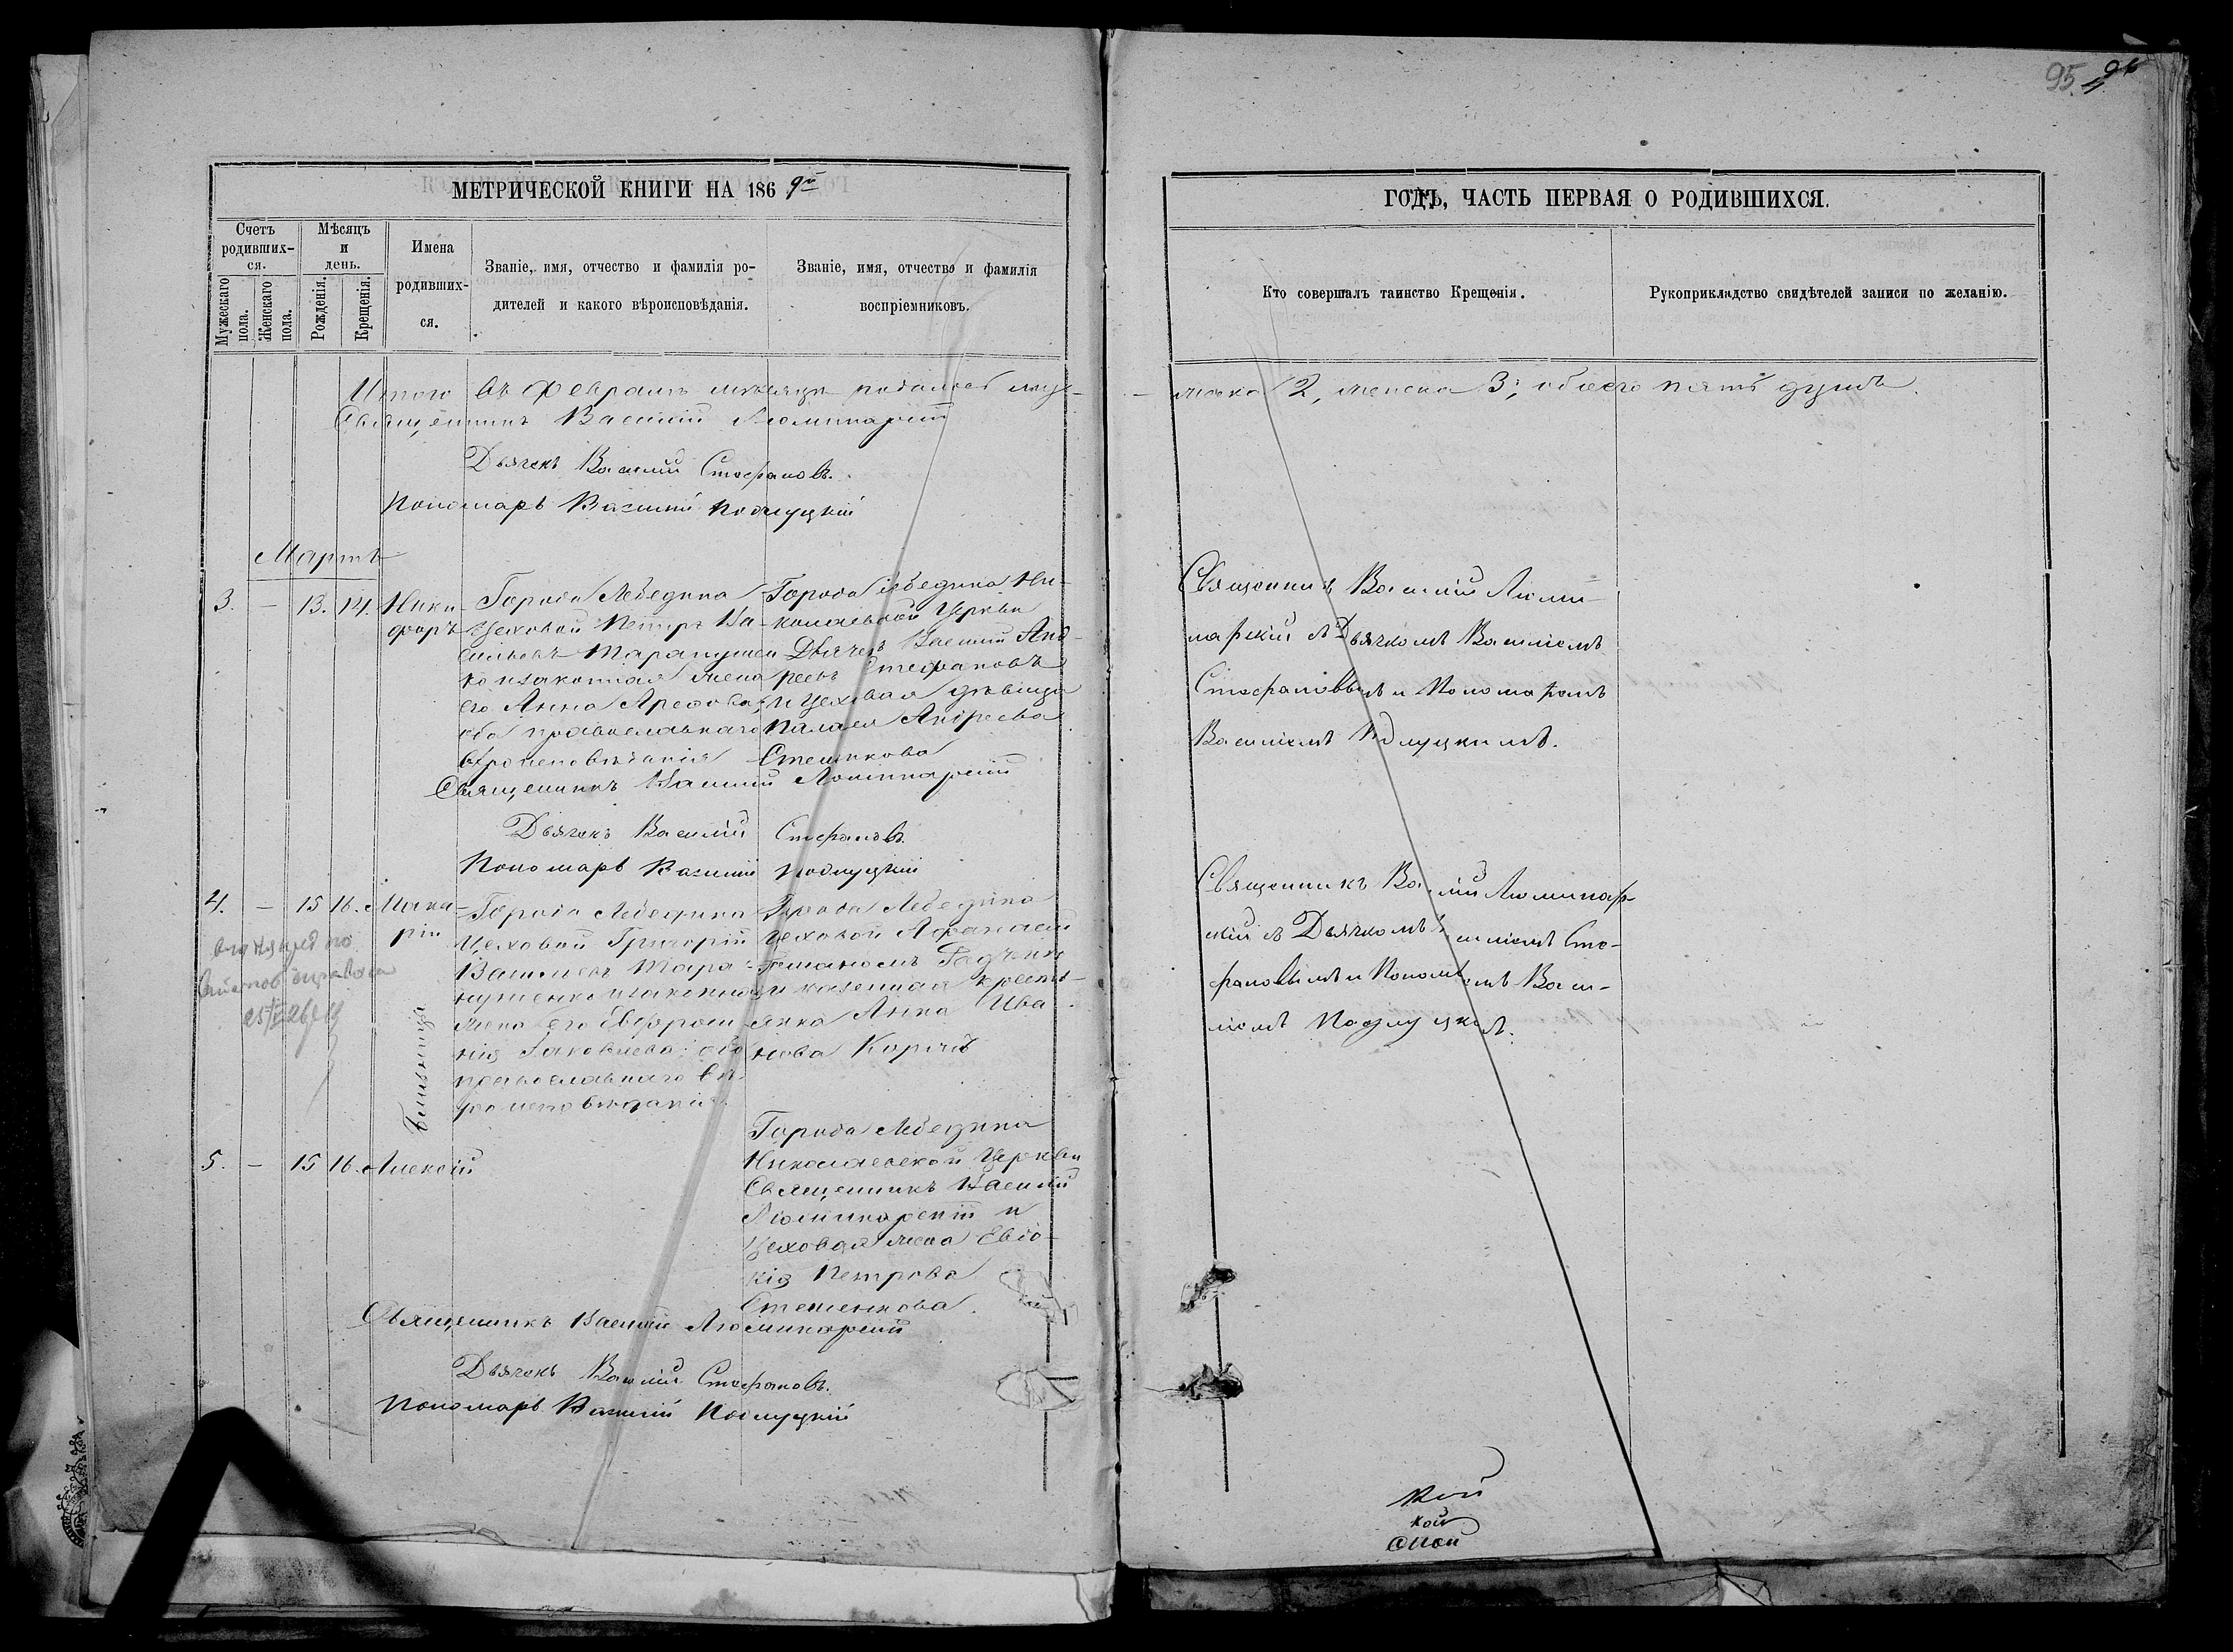 95.
МЕТРИЧЕСКОЙ КНИГИ НА 1869й
ГОДЪ, ЧАСТЬ ПЕРВАЯ О РОДИВШИХСЯ.
Счетъ родивших-ся.
Мужескаго пола.
Женскаго пола.
Мѣсяцъ и день.
Рожденія.
Крещенія.
Имена родивших-ся.
Званіе, имя, отчество и фамилія ро-
дителей и какого вѣроисповѣданія.
Званіе, имя, отчество и фамилія
воспріемниковъ.
Кто совершалъ таинство Крещенія.
Рукоприкладство свидѣтелей записи по желанію.
Итого въ Февралѣ мѣсяцѣ родилось муже-
ска 2, женска 3; обоего пять душъ.
Священникъ Василій Люминарскій
Дьячекъ Василій Стефановъ.
Пономарь Василій Подлуцкій
Мартъ
3. – 13. 14. Ники-
форъ
Города Лебедина
Цеховой Петръ Ва-
сильевъ Таранушен-
ко и законная жена
его Анна Арефова;
оба православнаго
вѣроисповѣданія
Города Лебедина Ни-
колаевской Церкви
Дьячекъ Василій Анд-
реевъ Стефановъ
и Цеховая дѣвица
Палагея Андреева
Стешнкова
Священникъ Василій Люми-
нарскій съ Дьячкомъ Василіемъ
Стефановымъ и Пономаремъ
Василіемъ Подлуцкимъ.
Священникъ Василій Люминарскій
Дьячекъ Василій Стефановъ.
Пономарь Василій Подлуцкій
4. – 15 16. Мака-
рій
25/VI 26
Близнецы
Города Лебедина
Цеховой Григорій
Васильевъ Тара-
нушенко и законная
жена его Евфроси-
нія Іаковлева; оба
православнаго вѣ-
роисповѣданія.
Города Лебедина
Цеховой Афанасій
и казенная крестья-
янка Анна Ива-
нова
Священникъ Василій Люминар-
скій съ Дьячкомъ Василіемъ Сте-
фановымъ и Пономаремъ Васи-
ліемъ Подлуцкимъ.
5. – 15 16. Алексій
Города Лебедина
Николаевской Церкви
Священникъ Василій
Люминарскій и
Цеховая жена Евдо-
кія Петрова
Стешенкова.
Священникъ Василій Люминарскій
Дьячекъ Василій Стефановъ.
Пономарь Василій Подлуцкій
кой